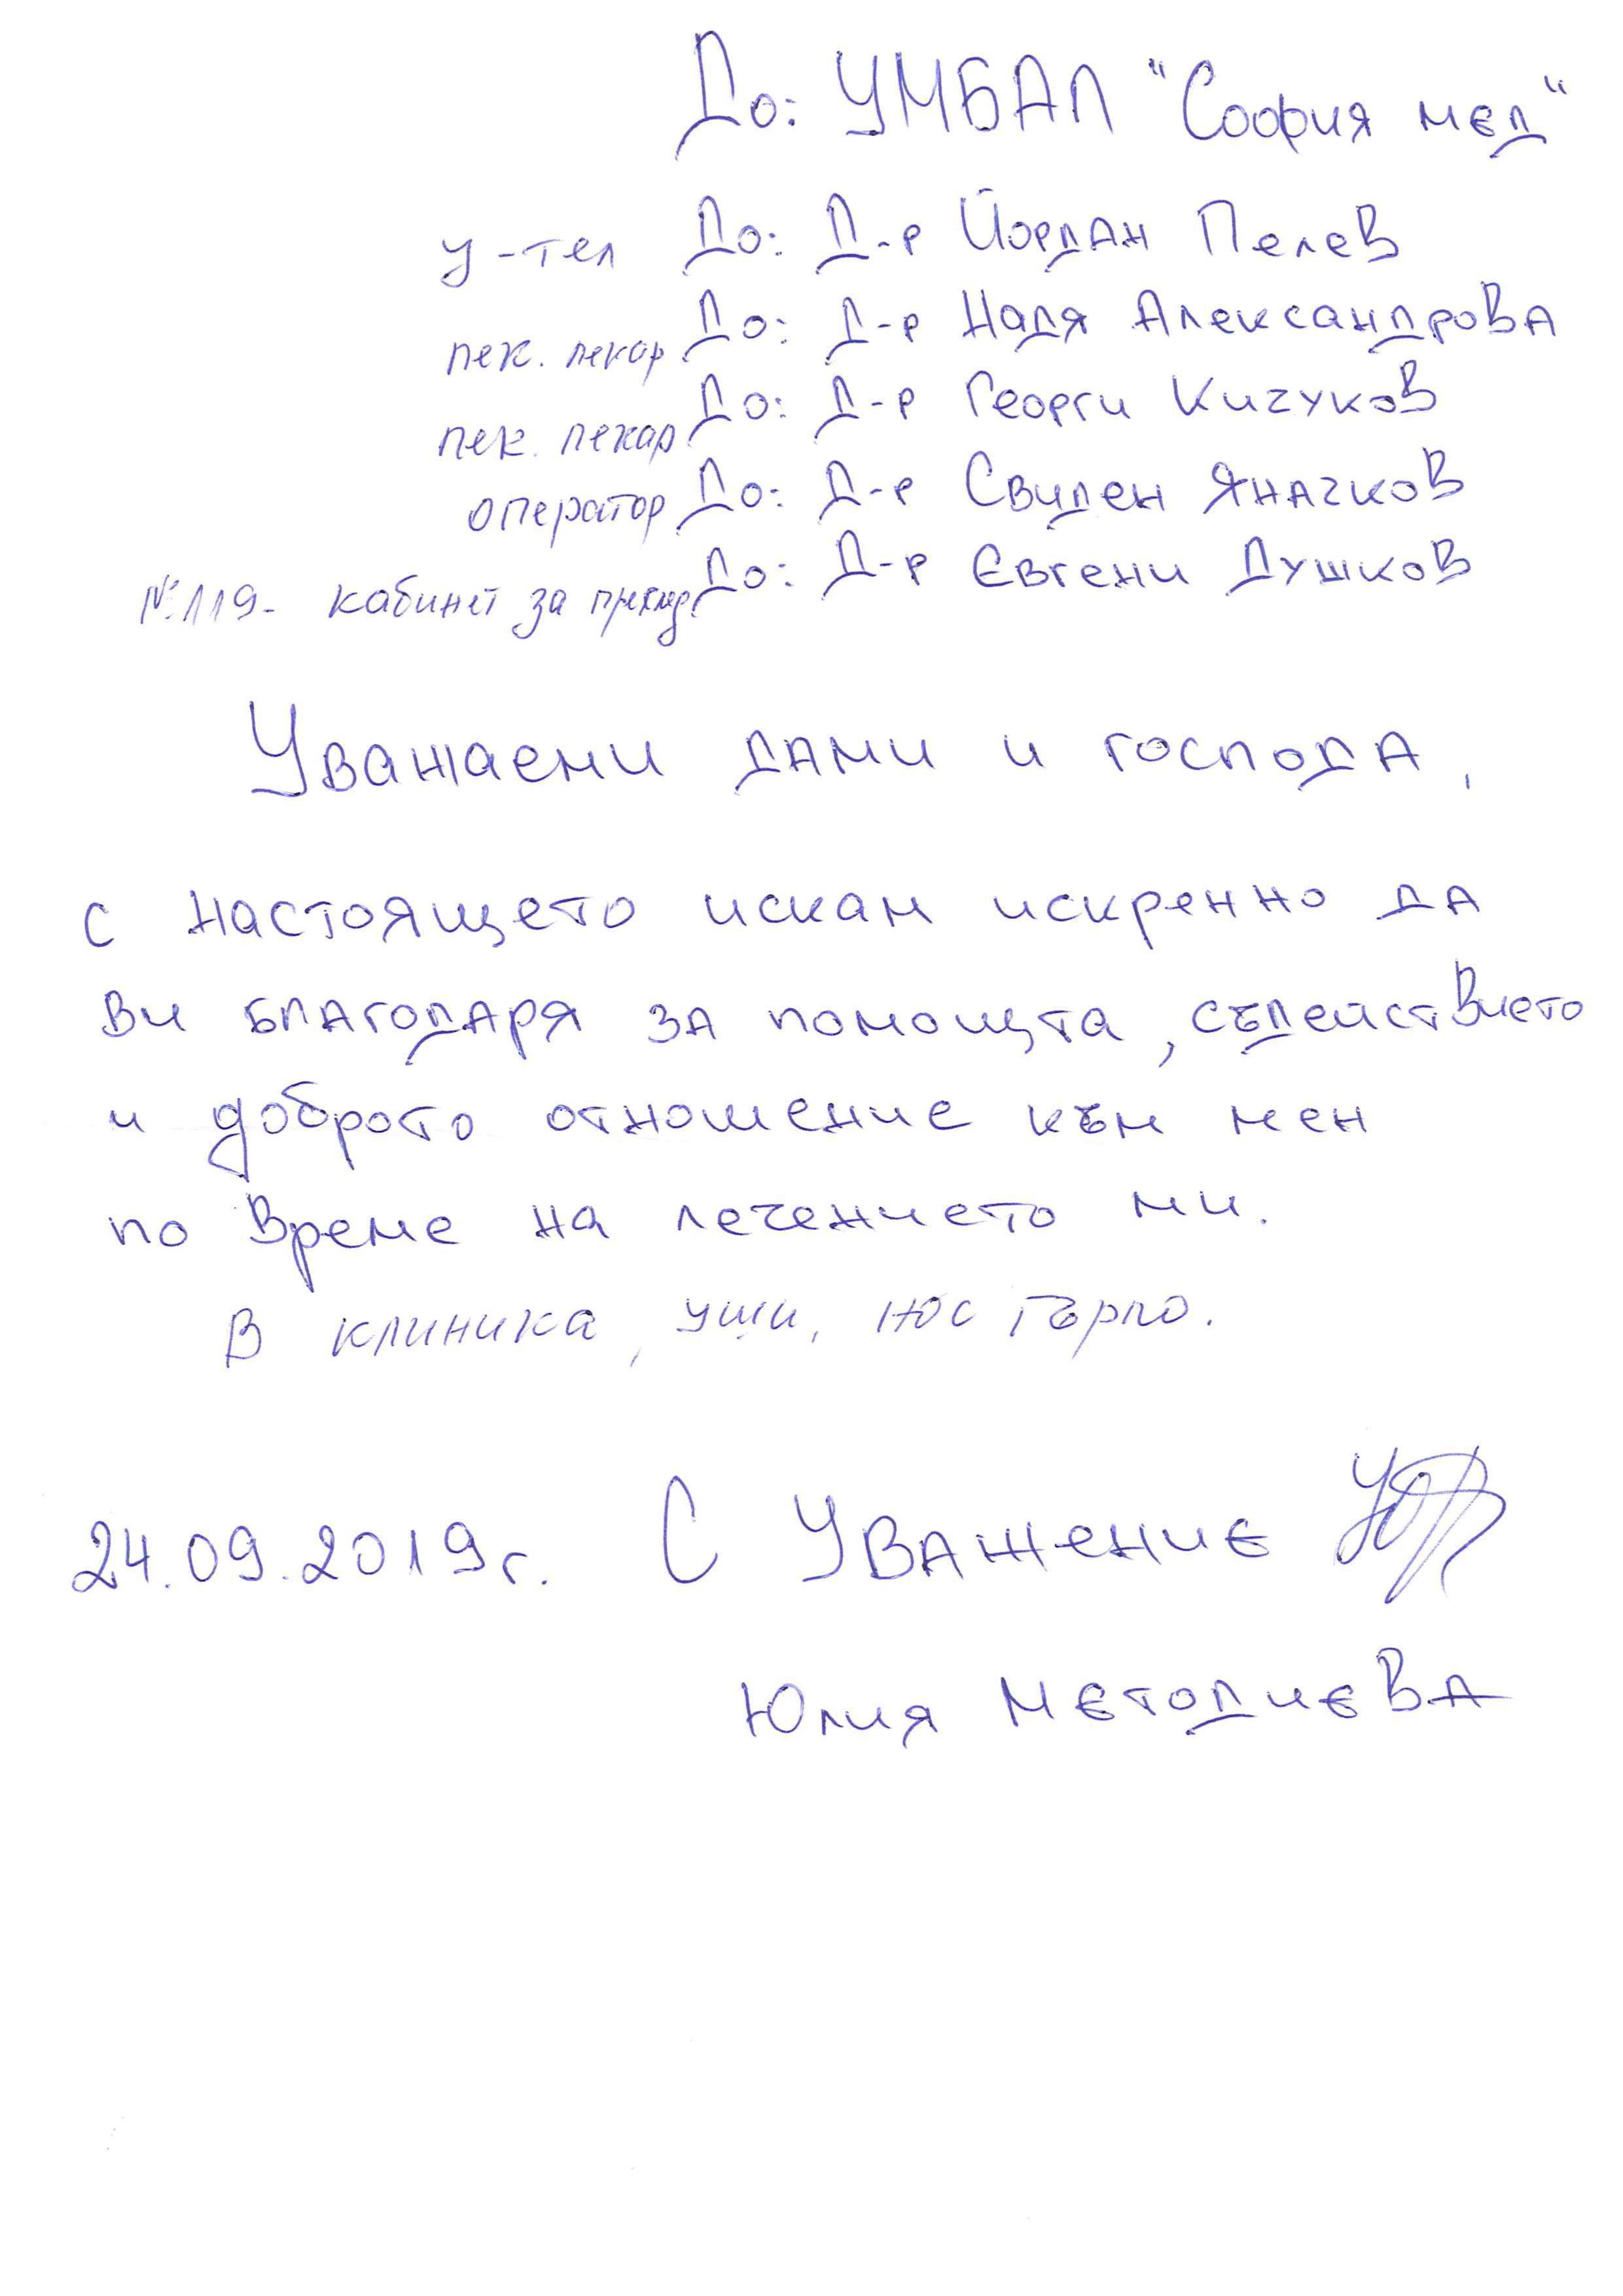 До: УМБАЛ "София мед"
у-тел До: Д-р Йордан Пелев
лек. лекар До: Д-р Надя Александрова
лек. лекар До: Д-р Георги Кичуков
оператор До: Д-р Свилен Яначков
№119- кабинет за До: Д-р Евгени Душков
Уважаеми дами и господа,
с настоящето искам искренно да
ви благодаря за помощта, съдействието
и доброто отношение към мен
по време на лечението ми.
В клиника, уши, нос гърло.
24.09.2019г. С Уважение
Юлия Методиева